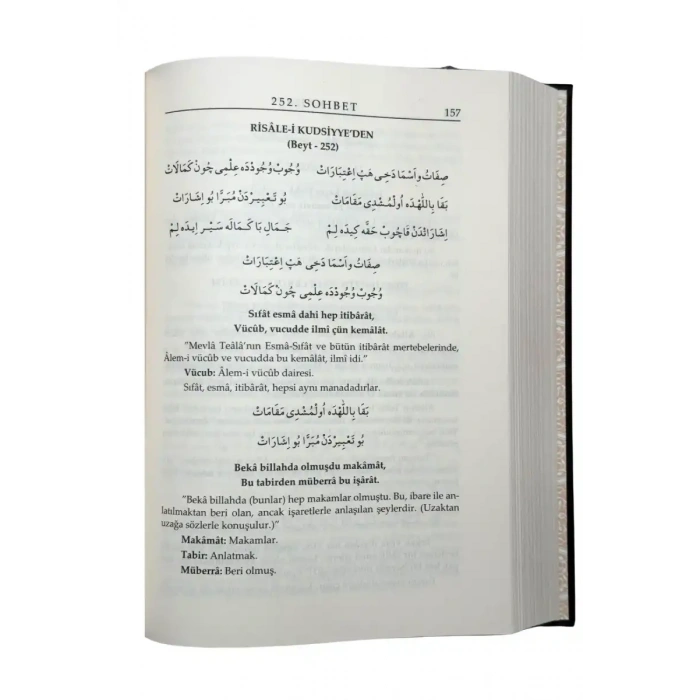 252. SOHBET
157
RİSÂLE-İ KUDSİYYE'DEN
(Beyt - 252)
صِفَاتُ وَاَسْمَا دَخِى هَپْ اِعْتِبَارَاتْ وُجُوبْ وُجُودْدَه عِلْمِى چُونْ كَمَالَاتْ
بَقَا بِاللّٰهْدَه اُولْمُشْدِى مَقَامَاتْ بُو تَعْبِيرْدَنْ مُبَرَّا بُو اِشَارَاتْ
اِشَارَاتْدَنْ قَاچُوبْ حَقَّه كِيدَه لِمْ جَمَالْ بَا كَمَالَه سَيْر اِيدَه لِمْ
صِفَاتُ وَاَسْمَا دَخِى هَپْ اِعْتِبَارَاتْ
وُجُوبْ وُجُودْدَه عِلْمِى چُونْ كَمَالَاتْ
Sıfât esmâ dahi hep itibârât,
Vücûb, vucudde ilmî çün kemâlât.
"Mevlâ Teâlâ'nın Esmâ-Sıfât ve bütün itibârât mertebelerinde,
Âlem-i vücûb ve vucudda bu kemâlât, ilmî idi."
Vücub: Âlem-i vücûb dairesi.
Sıfât, esmâ, itibârât, hepsi aynı manadadırlar.
بَقَا بِاللّٰهْدَه اُولْمُشْدِى مَقَامَاتْ
بُو تَعْبِيرْدَنْ مُبَرَّا بُو اِشَارَاتْ
Bekâ billahda olmuşdu makâmât,
Bu tabirden müberrâ bu işârât.
"Bekâ billahda (bunlar) hep makamlar olmuştu. Bu, ibare ile an-
latılmaktan beri olan, ancak işaretlerle anlaşılan şeylerdir. (Uzaktan
uzağa sözlerle konuşulur.)"
Makâmât: Makamlar.
Tabir: Anlatmak.
Müberrâ: Beri olmuş.